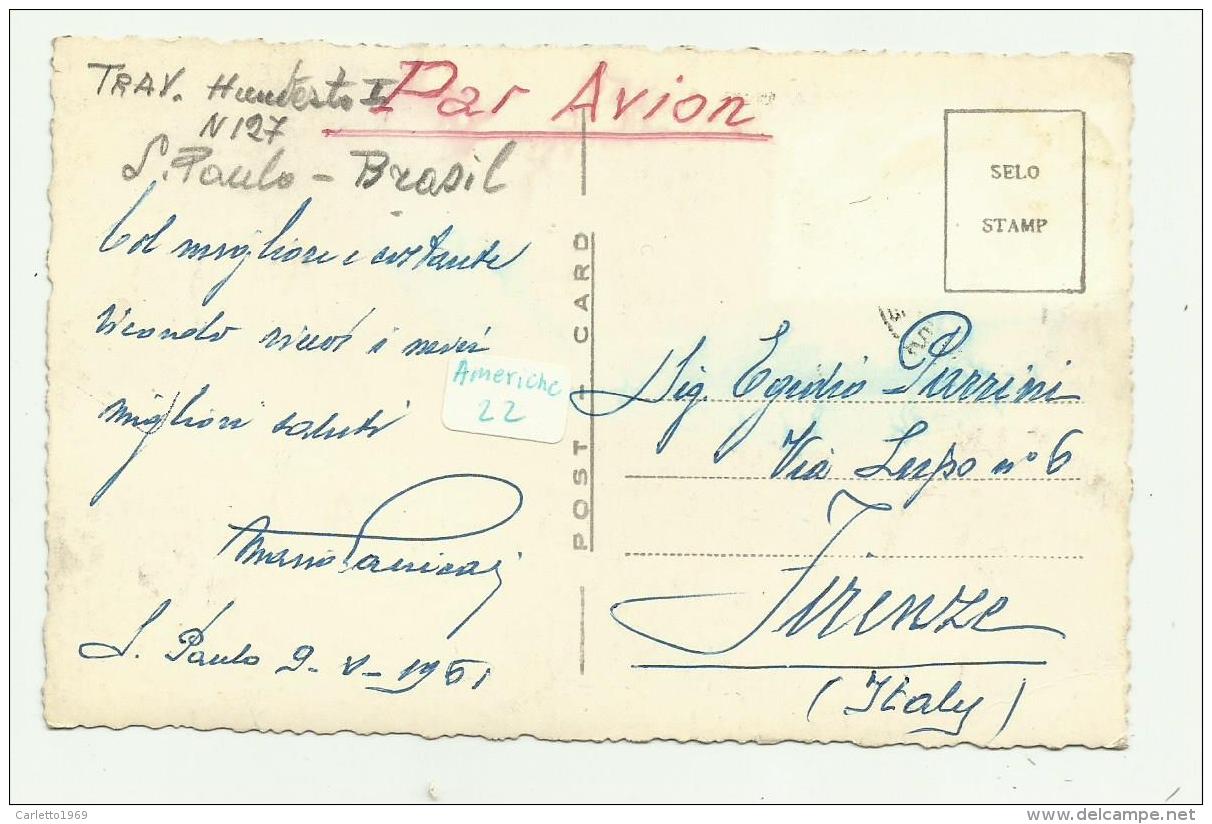 TRAV. Humberto I
N 127
S. Paulo - Brasil
Par Avion
Col migliore e costante
ricordo ricevi i miei
migliori saluti
Mario
S. Paulo 9-V-1951
Americhe
22
POST-CARD
SELO
STAMP
Sig. Egidio Parrini
Via Lupo n° 6
Firenze
(Italy)
Carletto1969
www.delcampe.net